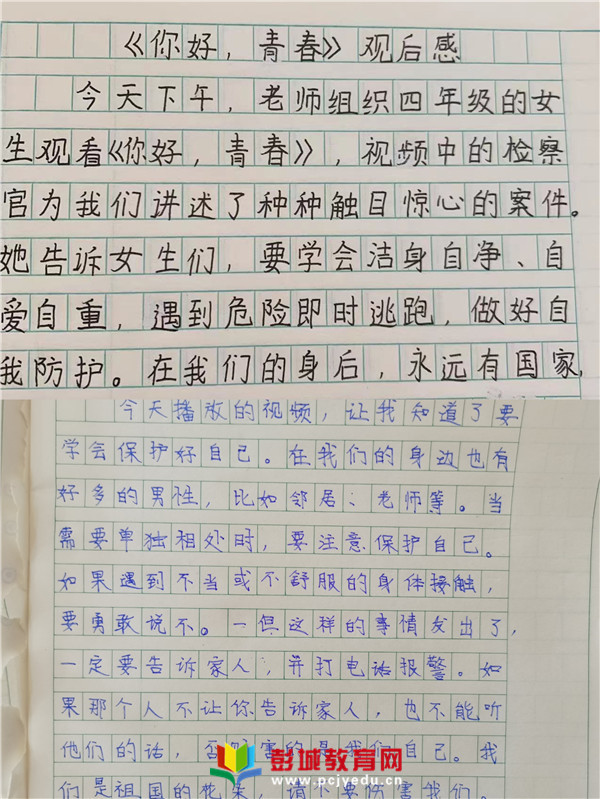 《你好，青春》观后感
今天下午，老师组织四年级的女
生观看《你好，青春》，视频中的检察
官为我们讲述了种种触目惊心的案件。
她告诉女生们，要学会洁身自净、自
爱自重，遇到危险即时逃跑，做好自
我防护。在我们的身后，永远有国家，
今天播放的视频，让我知道了要
学会保护好自己。在我们的身边也有
好多的男性，比如邻居、老师等。当
需要单独相处时，要注意保护自己。
如果遇到不当或不舒服的身体接触，
要勇敢说不。一但这样的事情发出了，
一定要告诉家人，并打电话报警。如
果那个人不让你告诉家人，也不能听
他们的话，否 害的是我们自己。我
们是祖国的花朵，请不要伤害我们。
彭城教育网
www.pcjyedu.cn